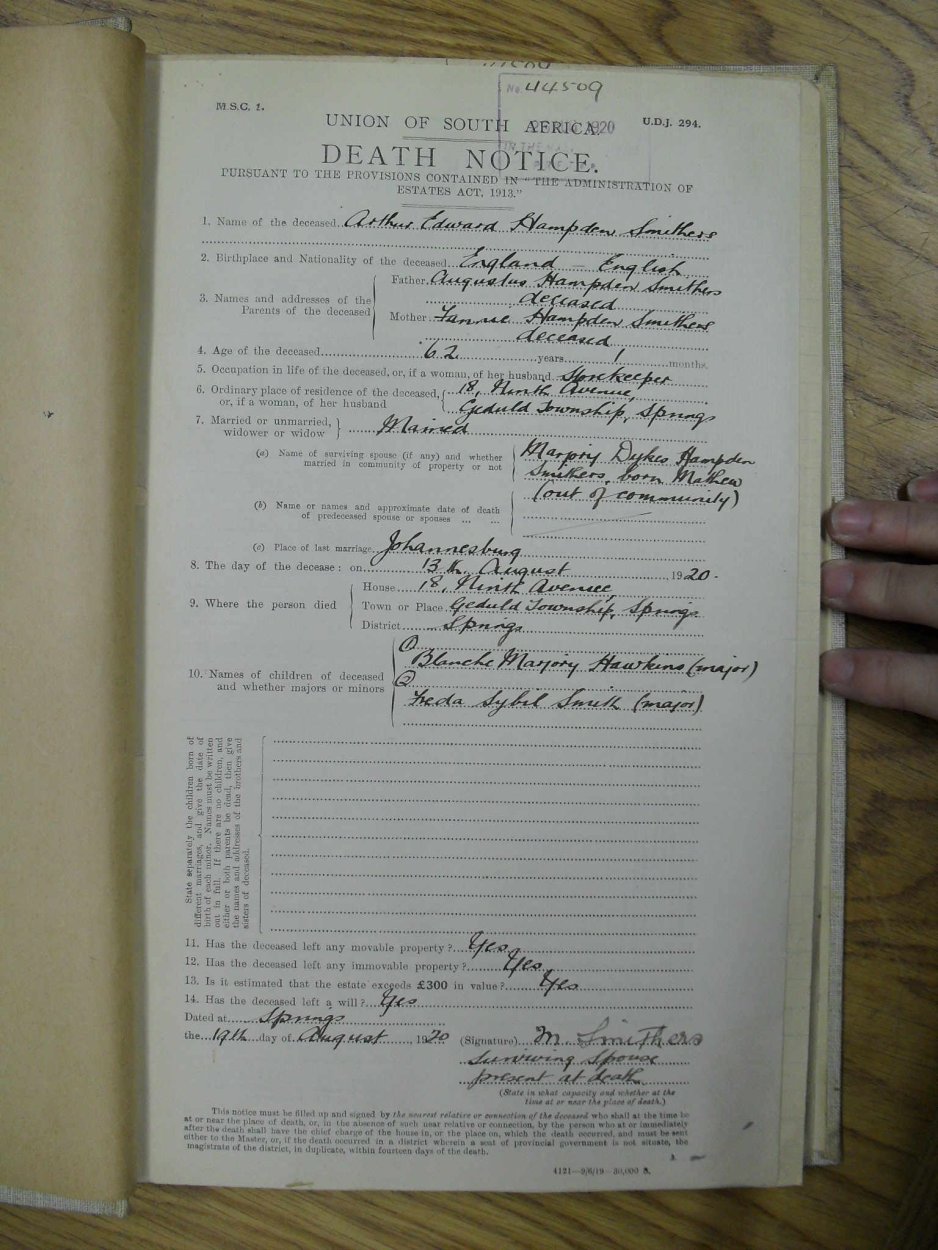 No. 44509
M.S.C. 1.
UNION OF SOUTH AFRICA.
1920
U.D.J. 294.
IN THE
DEATH NOTICE.
PURSUANT TO THE PROVISIONS CONTAINED IN "THE ADMINISTRATION OF
ESTATES ACT, 1913."
1. Name of the deceased Arthur Edward Hampden Smithers
2. Birthplace and Nationality of the deceased England – English
3. Names and addresses of the Parents of the deceased
Father Augustus Hampden Smithers
deceased
Mother Fannie Hampden Smithers
deceased
4. Age of the deceased 62 years 1 months.
5. Occupation in life of the deceased, or, if a woman, of her husband Storekeeper
6. Ordinary place of residence of the deceased, 18, Ninth Avenue,
or, if a woman, of her husband Geduld Township, Springs
7. Married or unmarried, widower or widow Married
(a) Name of surviving spouse (if any) and whether married in community of property or not
Marjory Dykes Hampden
Smithers, born Mathew
(out of community)
(b) Name or names and approximate date of death
of predeceased spouse or spouses ... ...
(c) Place of last marriage Johannesburg
8. The day of the decease: on 13th August 1920.
9. Where the person died
House 18, Ninth Avenue,
Town or Place Geduld Township, Springs
District Springs
10. Names of children of deceased
and whether majors or minors
(1)
Blanche Marjory Hawkins (major)
(2)
Freda Sybil Smith (major)
State separately the children born of
different marriages, and give the date of
birth of each minor. Names must be written
out in full. If there are no children, and
either or both parents be dead, then give
the names and addresses of the brothers and
sisters of deceased.
11. Has the deceased left any movable property? Yes
12. Has the deceased left any immovable property? Yes
13. Is it estimated that the estate exceeds £300 in value? Yes
14. Has the deceased left a will? Yes
Dated at Springs
the 19th day of August, 1920
(Signature) M Smithers
surviving spouse
present at death
(State in what capacity and whether at the
time at or near the place of death.)
This notice must be filled up and signed by the nearest relative or connection of the deceased who shall at the time be
at or near the place of death, or, in the absence of such near relative or connection, by the person who at or immediately
after the death shall have the chief charge of the house in, or the place on, which the death occurred, and must be sent
either to the Master, or, if the death occurred in a district wherein a seat of provincial government is not situate, the
magistrate of the district, in duplicate, within fourteen days of the death.
J.
4121—9/6/19 30,000 S.